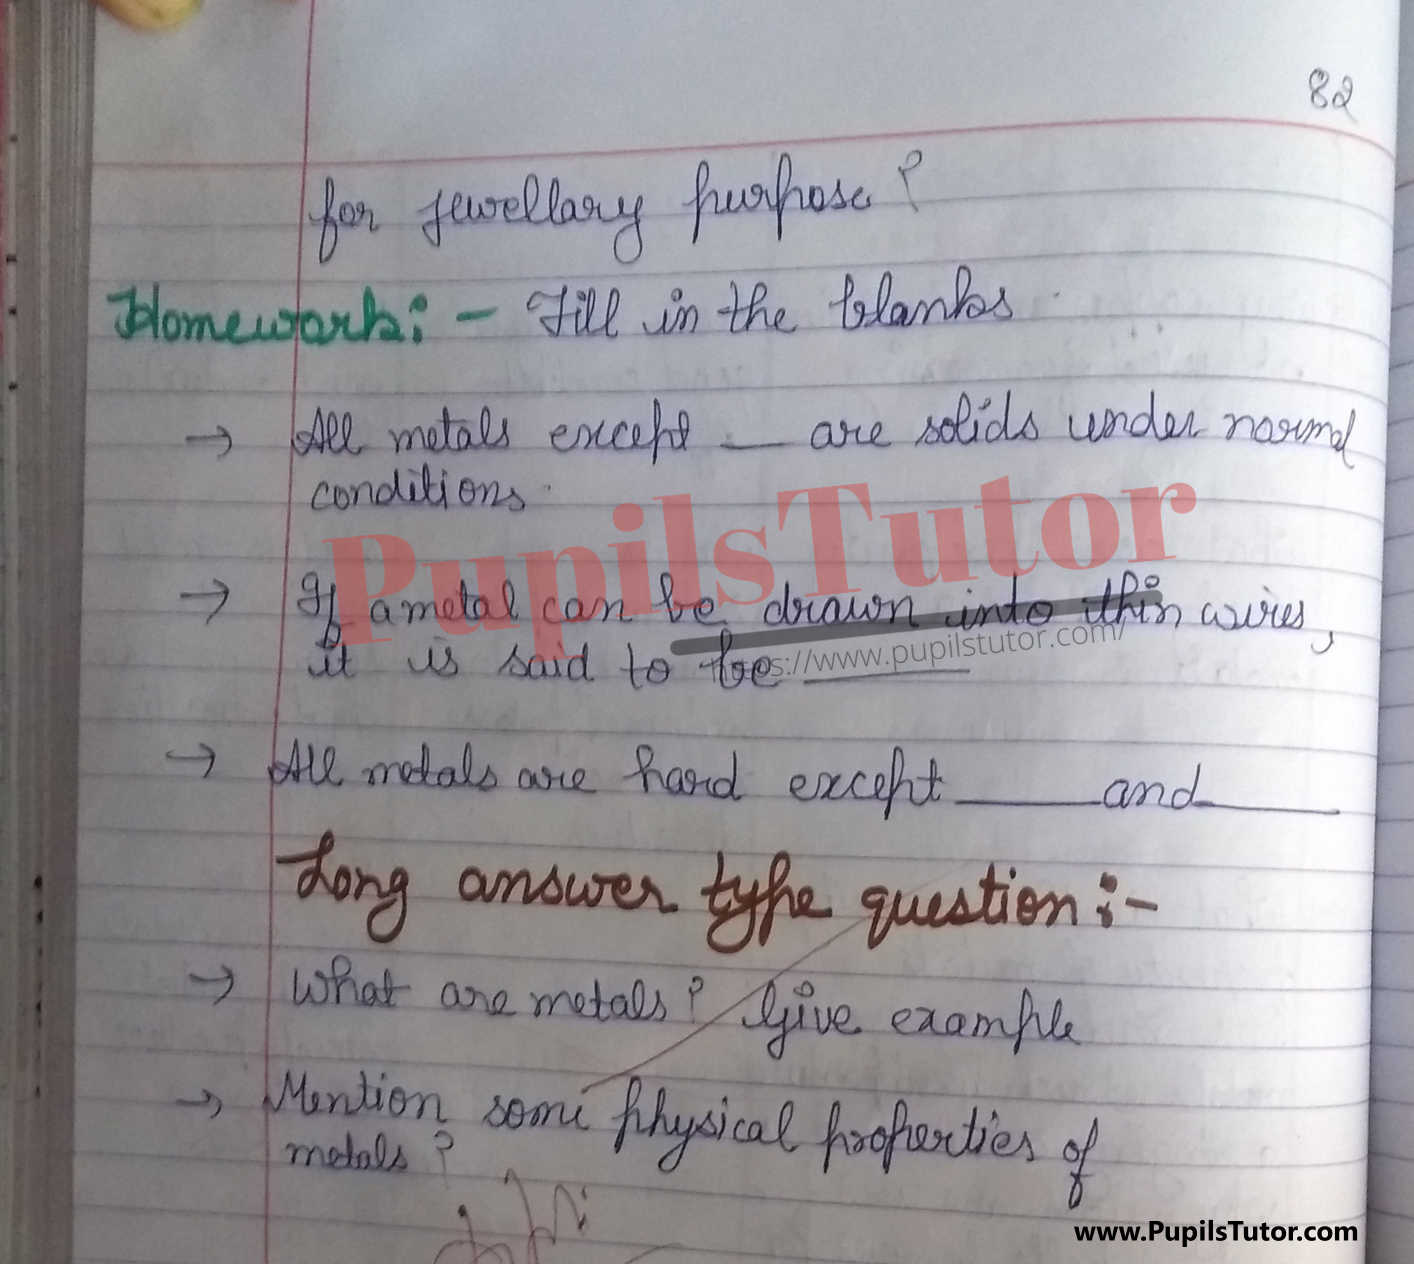 82
for jewellary purpose?
Homework:- Fill in the blanks.
→ All metals except — are solids under normal
conditions.
PupilsTutor
→ If a metal can be drawn into thin wires,
it is said to be ______
s://www.pupilstutor.com/
→ All metals are hard except ______ and ______
Long answer type question:-
→ What are metals? Give example
→ Mention some physical properties of
metals?
www.PupilsTutor.com